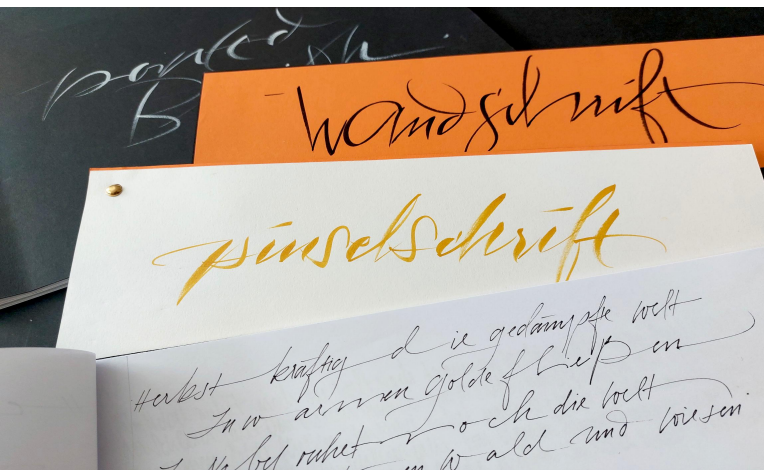 handschrift
pinselschrift
Herbst kräftig die gedämpfte welt
In warmen golde fließen
Nebel ruhet noch die welt
wald und wiesen